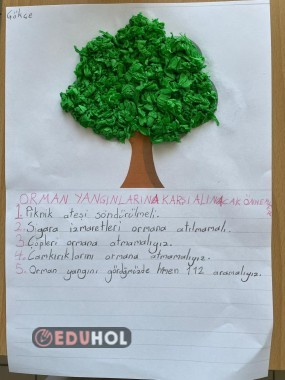 Gökçe
ORMAN YANGINLARINA KARŞI ALINACAK ÖNLEMLER
1. Piknik ateşi söndürülmeli.
2. Sigara izmaretleri ormana atılmamalı.
3. Çöpleri ormana atmamalıyız.
4. Camkırıklarını ormana atmamalıyız.
5. Orman yangını gördüğümüzde hmen 112 aramalıyız.
EDUHOL